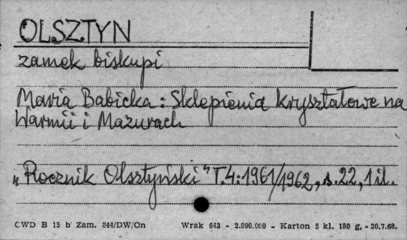 OLSZTYN
zamek biskupi
Maria Babicka: Sklepienia kryształowe na
Warmii i Mazurach
"Rocznik Olsztyński" T.4: 1961/1962, s. 22, 1 il.
CWD B 15 b Zam. 844/DW/On Wrak 643 - 2.090.000 - Karton 5 kl. 180 g, - 30.7.68.